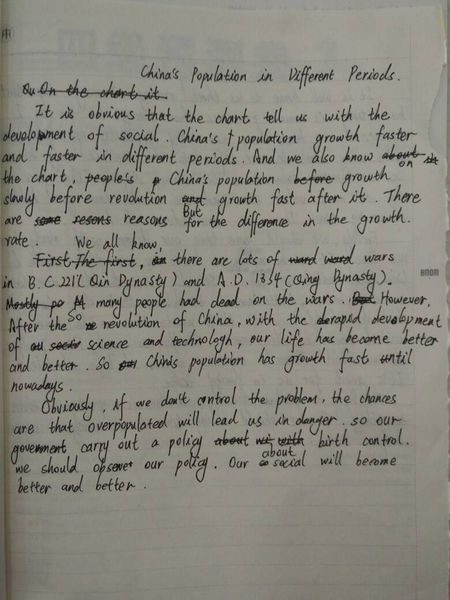 China's Population in Different Periods.
On On the chart it
It is obvious that the chart tell us with the
development of social. China's population growth faster
and faster in different periods. And we also know about on
the chart, people's China's population before growth
slowly before revolution and But growth fast after it. There
are some resons reasons for the difference in the growth.
rate. We all know,
First The first, there are lots of ward ward wars
in B.C 221( Qin Dynasty) and A.D. 1314 (Qing Dynasty).
Mostly So many people had dead on the wars. But However,
After the revolution of China, with the rapid development
of science and technologh, our life has become better
and better. So China's population has growth fast until
nowadays.
Obviously, if we don't control the problem, the chances
are that overpopulated will lead us in danger. so our
government carry out a policy about with about birth control.
we should observe our policy. Our social will become
better and better.
BNOM